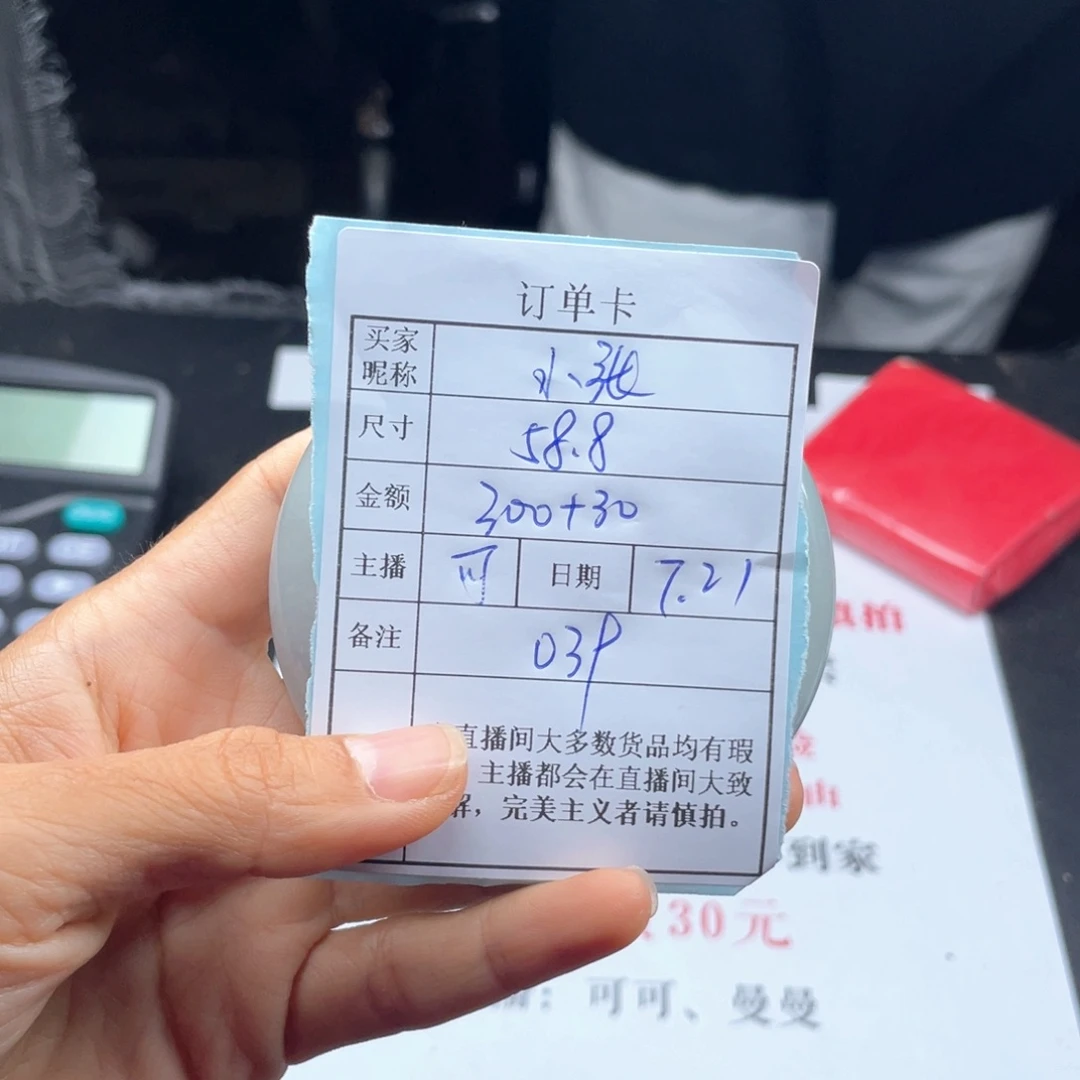 订单卡
买家
昵称
小张
尺寸
58.8
金额
300+30
主播
可
日期
7.21
备注
039
直播间大多数货品均有瑕
主播都会在直播间大致
屏，完美主义者请慎拍。
慎拍
到家
30元
：可可、曼曼